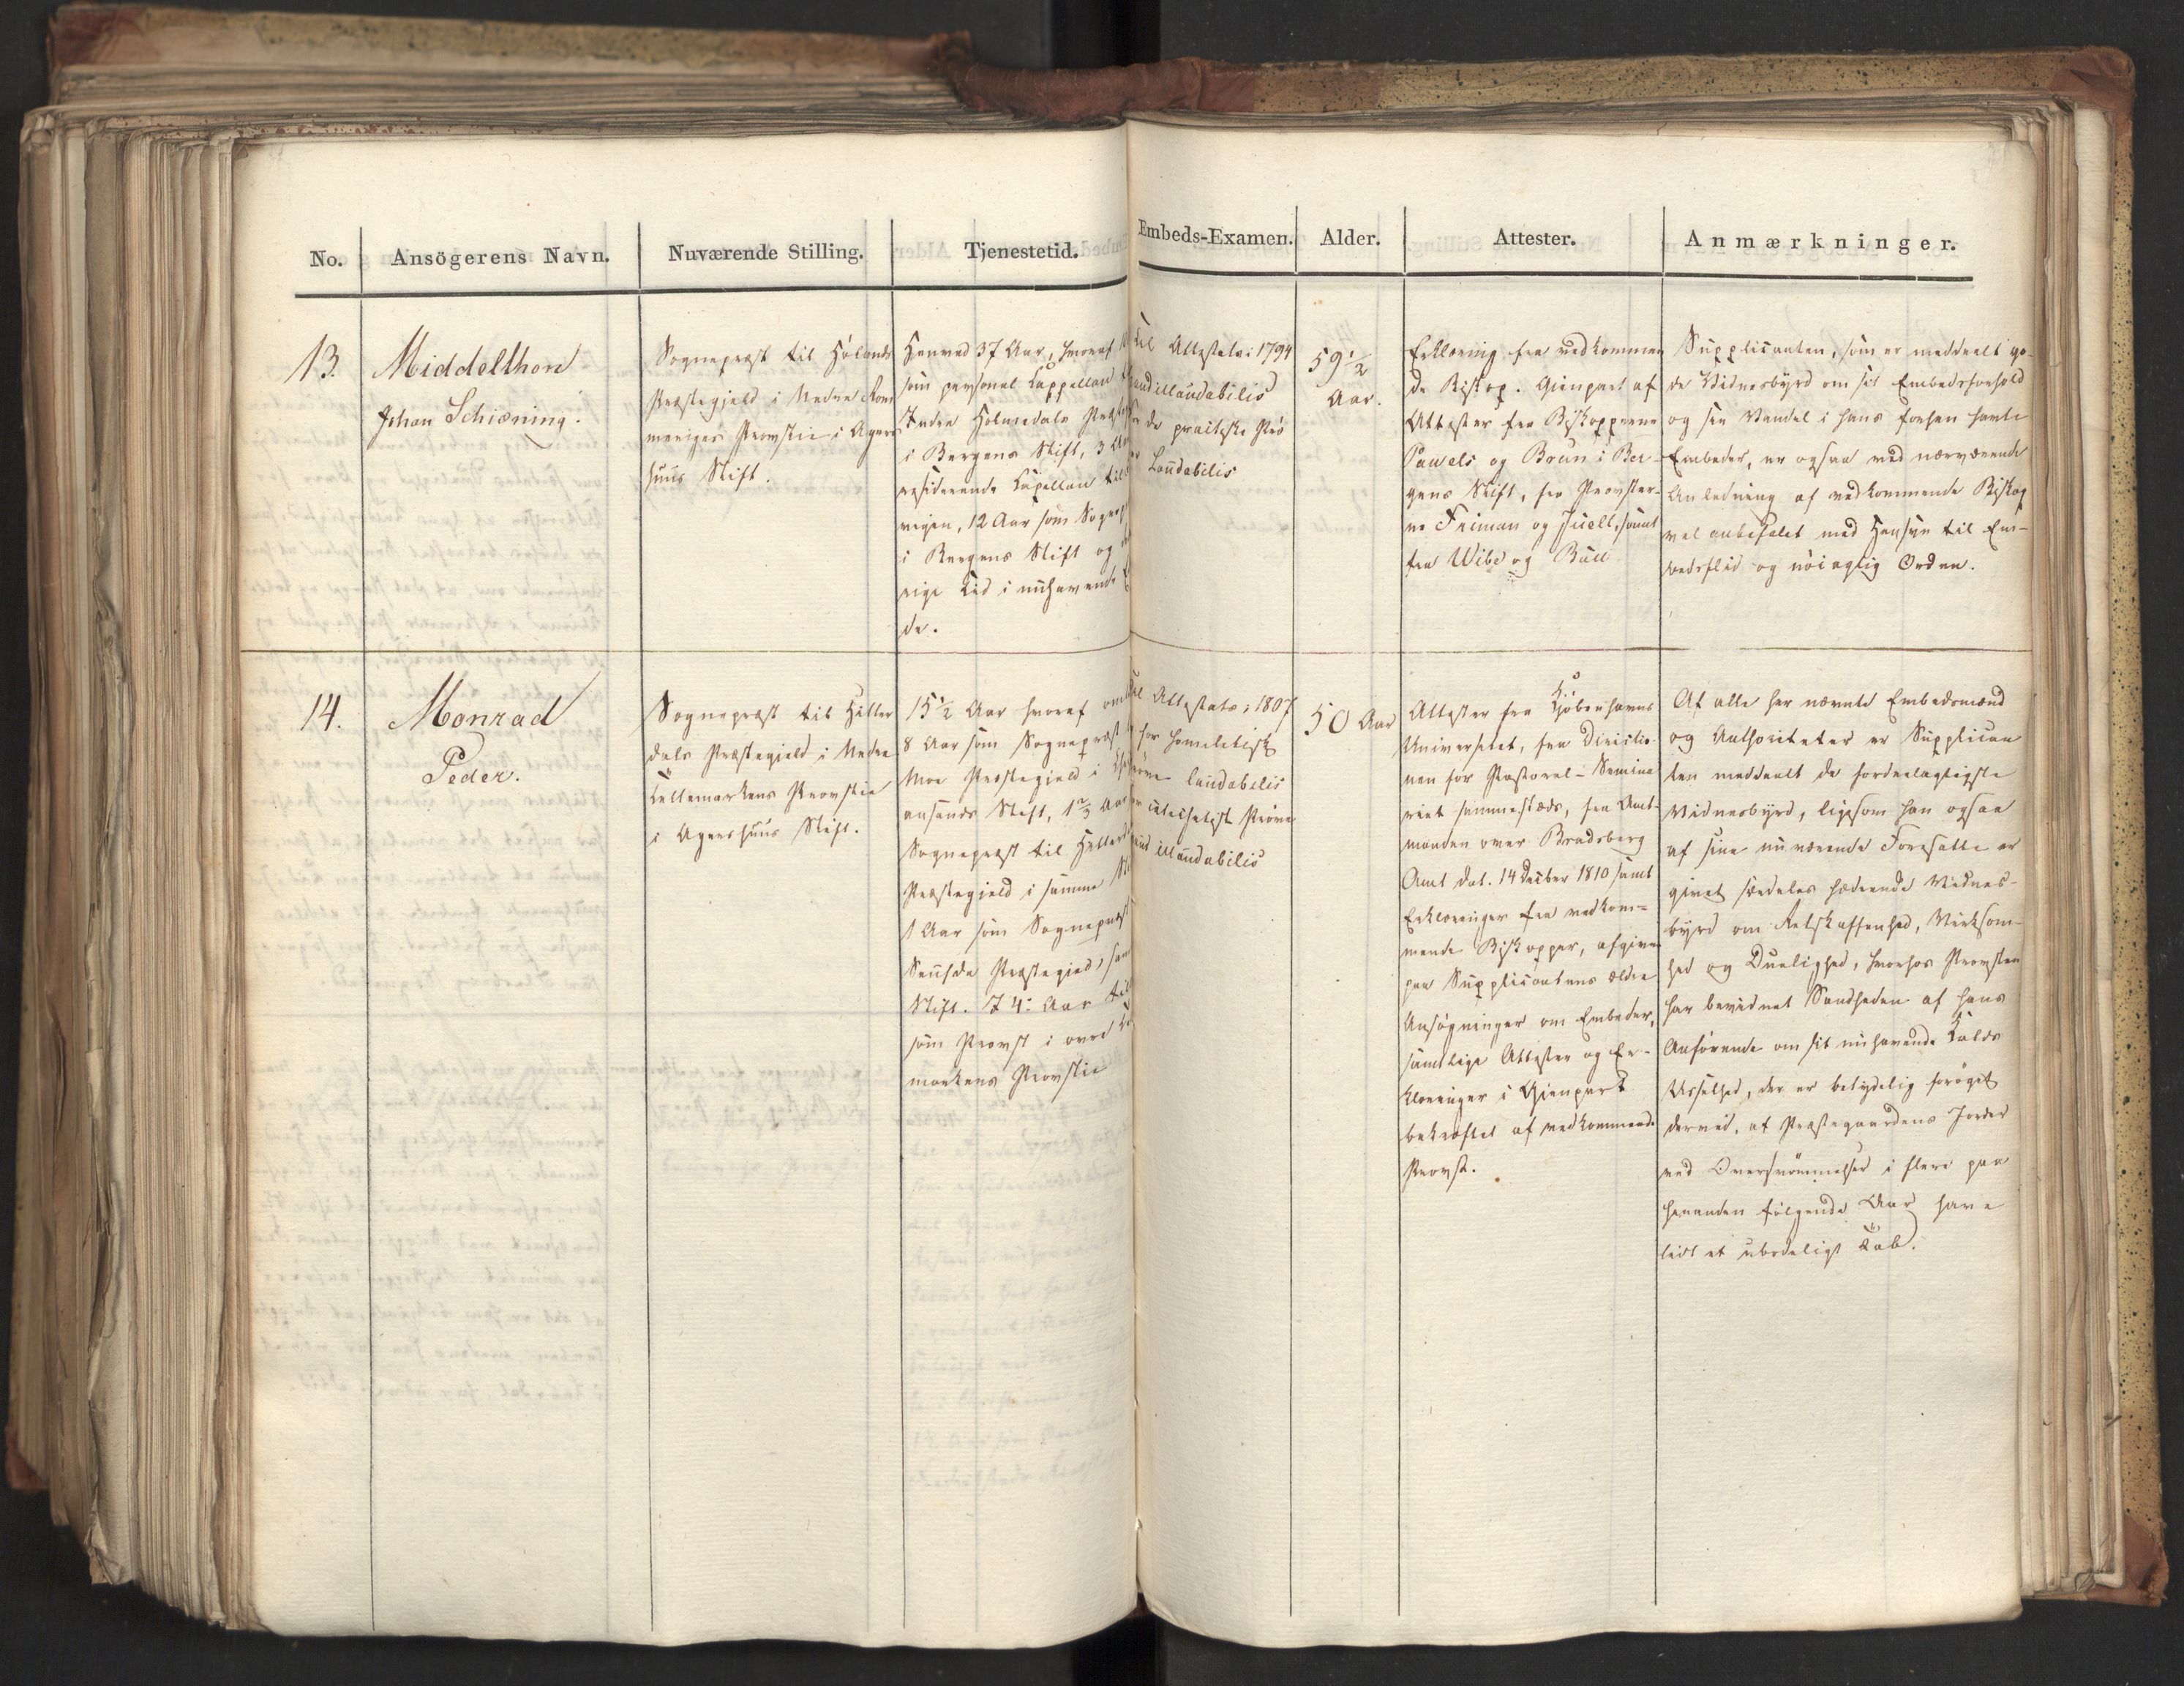 No. Ansögerens Navn. Nuværende Stilling. Tjenestetid. Embeds-Examen. Alder. Attester. Anmærkninger.
13.
Middelthon
Johan Schiöning.
Sognepræst til Hölands
Præstegjeld i Nedre Rom
meriges Provstie i Agers
huus Stift.
Henved 37 Aar, hvoraf
som personel Cappellan
Indre Holmedals Præst
i Bergens Stift, 3
residerende Capellan til
vigen, 12 Aar som Sognep
i Bergens Stift og
rige Tid i nuhavende
de.
Attestats: 1794
haud illaudabilis
de practiske Prö
Laudabilis
59 1/2
Aar.
Erklæring fra vedkommen
de Biskop. Gienpart af
Attester fra Biskopperne
Pavels og Brun i Ber-
gens Stift, fra Provster-
ne Friman og Juell, samt
fra Wibe og Bull
Supplicanten, som er meddeelt go-
de Vidnesbyrd om sit Embedsforhold
og sin Vandel i hans forhen havte
Embeder, er ogsaa ved nærværende
Anledning af vedkommende Biskop
vel anbefalet med Hensyn til Em-
bedsflid og nöiagtig Orden.
14.
Monrad
Peder.
Sognepræst til Hitter
dals Præstegjeld i Nedre
Tellemarkens Provstie
i Agershuus Stift.
15 1/2 Aar hvoraf om
8 Aar som Sognepræst
Moe Præstegjeld i
ansands Stift, 1 2/3 Aar
Sognepræst til Hitter
Præstegjeld i samme
1 Aar som Sognepræst
Præstegjeld, sam
Stift. I 4 Aar til
som Provst i övre
markens Provstie
Attestats: 1807
for homiletisk
laudabilis
catechetisk Pröve
haud illaudabilis
50 Aar
Attester fra Kjöbenhavns
Universitet, fra Directio
nen for Pastoral-Semina
riet sammesteds, fra Amt-
manden over Bradsberg
Amt dat. 14 Decbr 1810 samt
Erklæringer fra vedkom-
mende Biskopper, afgivne
paa Supplicantens ældre
Ansögninger om Embeder,
samtlige Attester og Er-
klæringer i Gienpart
bekræftet af vedkommende
Provst.
Af alle her nævnte Embedsmænd
og Authoriteter er Supplican
ten meddeelt de fordeelagtigste
Vidnesbyrd, ligesom han ogsaa
af sine nuværende Foresatte er
givet særdeles hædrende Vidnes-
byrd om Retskaffenhed, Virksom-
hed og Duelighed, hvorhos Provsten
har bevidnet Sandheden af hans
Anförende om sit nuhavende Kalds
Usselhed, der er betydelig foröget
derved, at Præstegaardens Jorder
ved Oversvömmelser i flere paa
hinanden fölgende Aar have
lidt et ubodeligt Tab.